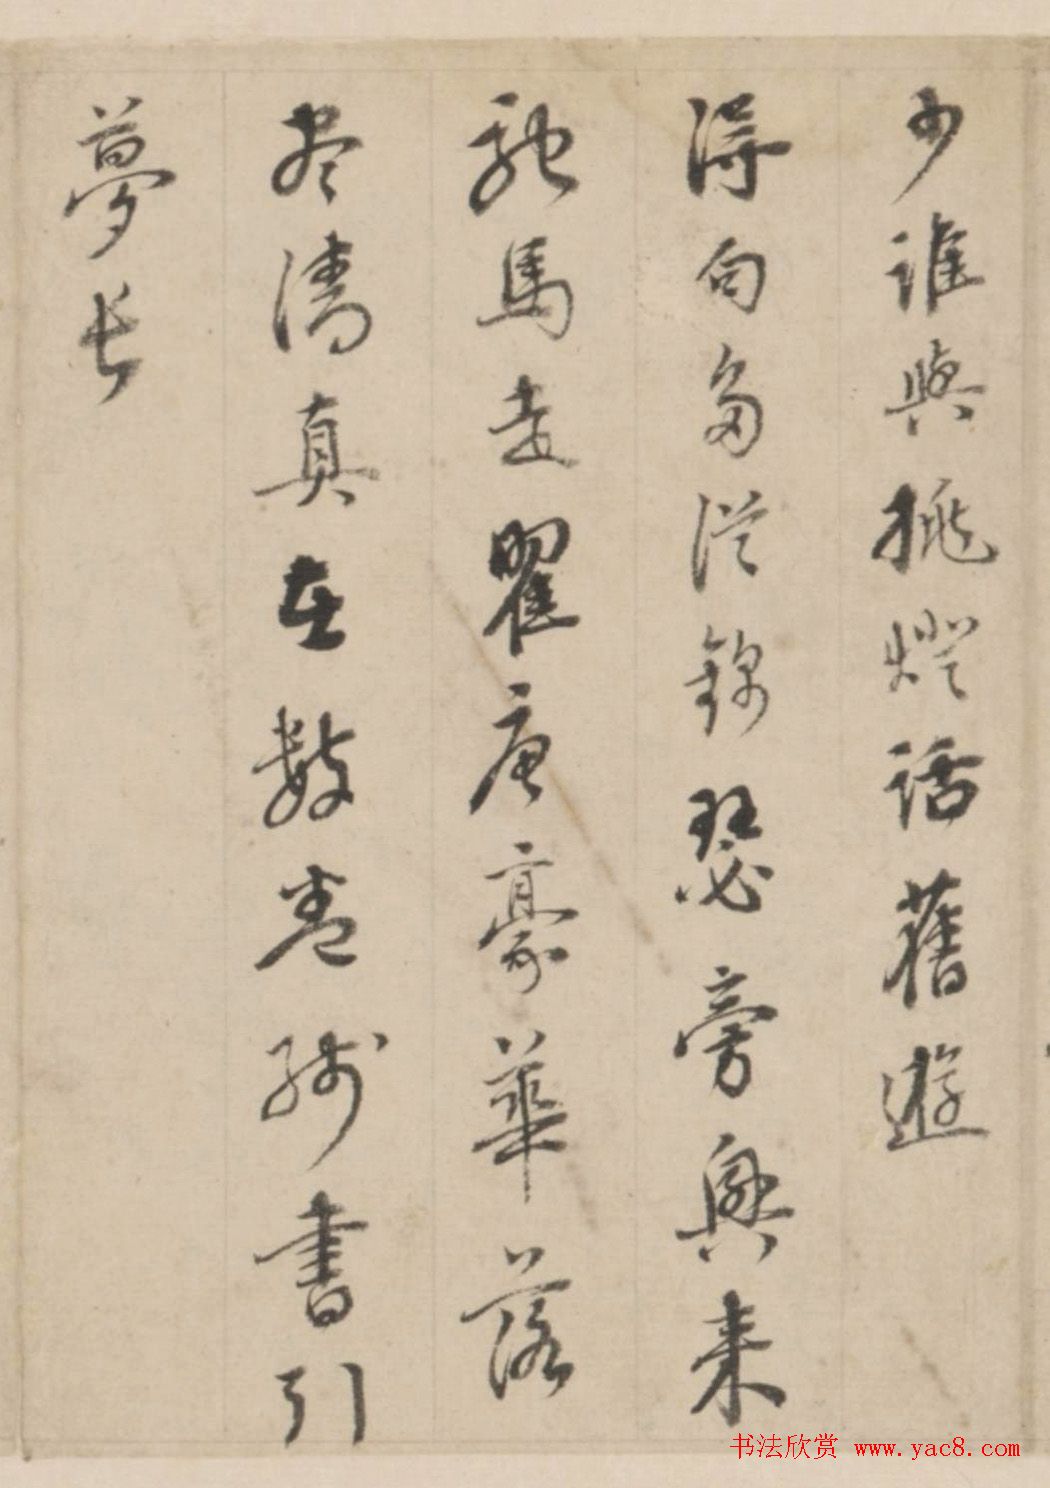 少誰與挑燈話舊遊
得句多從錦瑟旁興來
馳馬走瞿唐豪華落
盡清真在數卷殘書引
夢長
书法欣赏 www.yac8.com